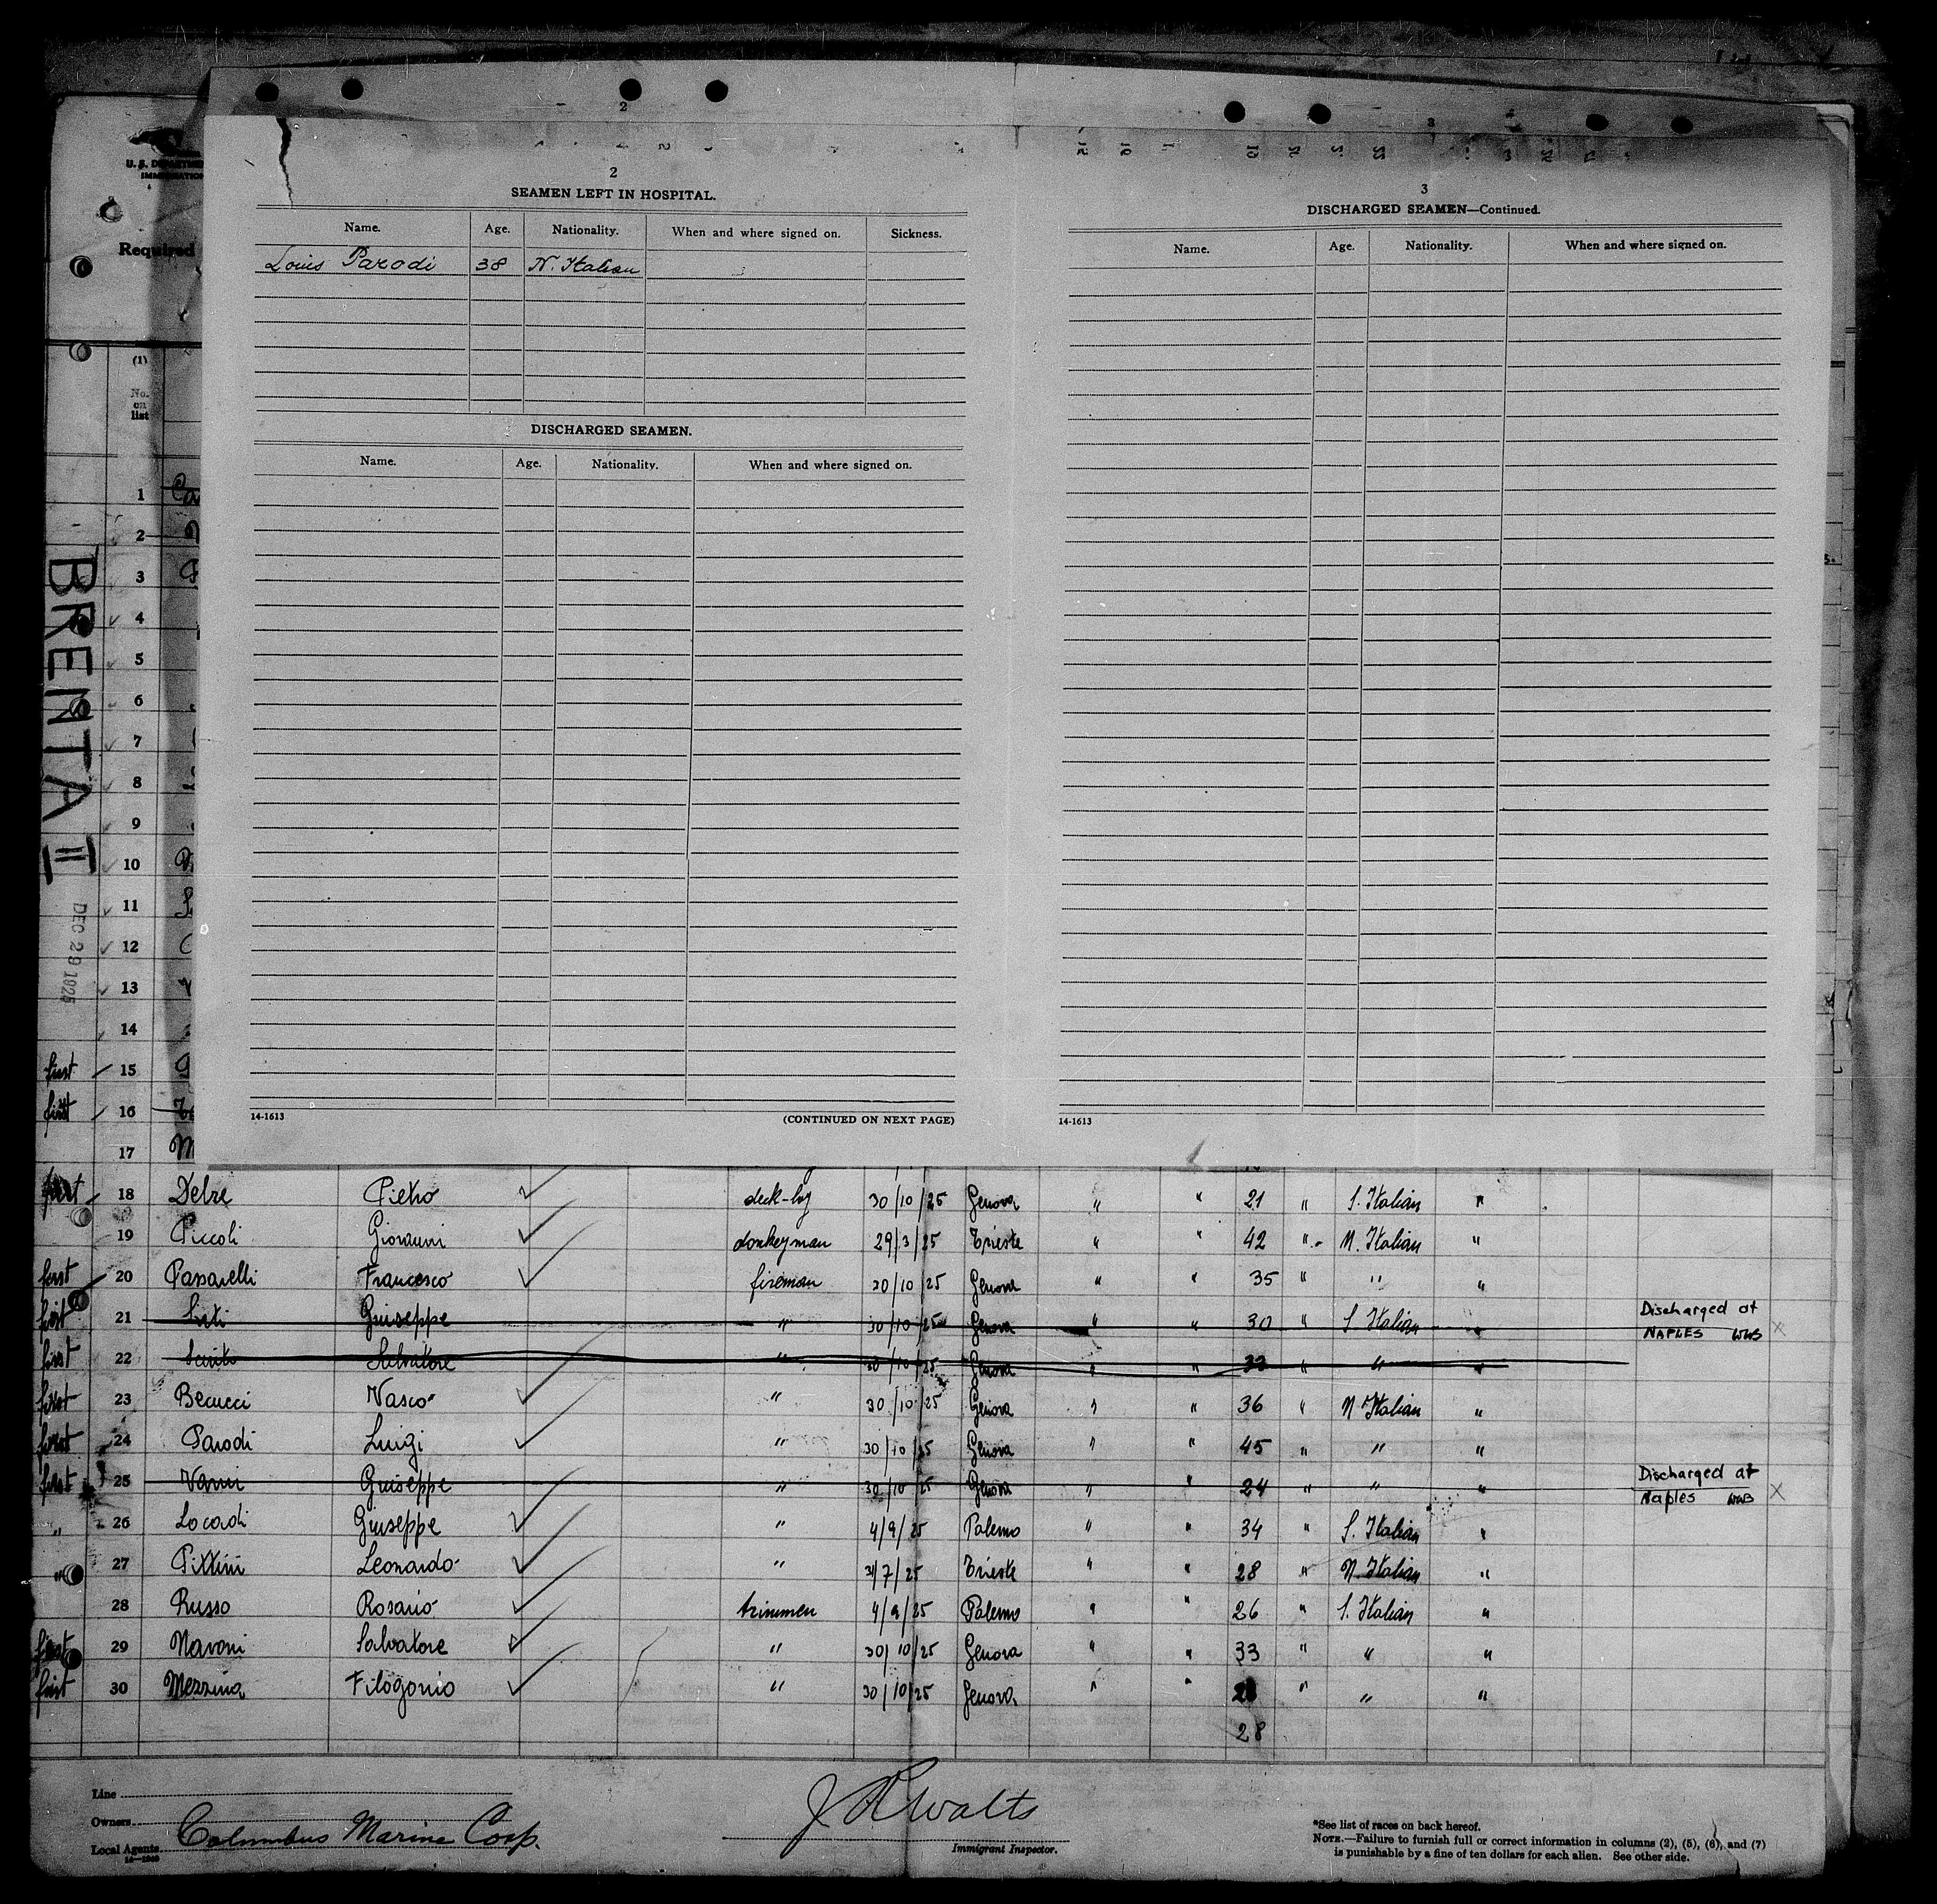 2
3
2
SEAMEN LEFT IN HOSPITAL.
Name. Age. Nationality. When and where signed on. Sickness.
Louis Parodi 38 N. Italian
DISCHARGED SEAMEN.
Name. Age. Nationality. When and where signed on.
14-1613 (CONTINUED ON NEXT PAGE)
3
DISCHARGED SEAMEN—Continued.
Name. Age. Nationality. When and where signed on.
14-1613
Required
(1)
No. on list
BRENTA II
DEC 29 1925
1
2
3
4
5
6
7
8
9
10
11
12
13
14
first 15
first 16
17
first 18 Delre Pietro deck-boy 30/10/25 Genova " " 21 " S. Italian "
19 Piccoli Giovanni donkeyman 29/3/25 Trieste " " 42 " N. Italian "
first 20 Passarelli Francesco fireman 30/10/25 Genova " " 35 " " "
first 21 Giuseppe " 30/10/25 Genova " " 30 " S Italian " Discharged at NAPLES WWB X
first 22 Salvatore " 30/10/25 Genova " " 33 " " "
first 23 Becucci Vasco " 30/10/25 Genova " " 36 " N Italian "
first 24 Parodi Luigi " 30/10/25 Genova " " 45 " " "
first 25 Vanni Giuseppe " 30/10/25 Genova " " 24 " " " Discharged at Naples WWB X
" 26 Locadi Giuseppe " 4/9/25 Palermo " " 34 " S. Italian "
" 27 Pittini Leonardo " 31/7/25 Trieste " " 28 " N. Italian "
28 Russo Rosario trimmer 4/9/25 Palermo " " 26 " S. Italian "
first 29 Navoni Salvatore " 30/10/25 Genova " " 33 " " "
first 30 Mezzina Filogonio " 30/10/25 Genova " " " " "
28
Line
Owners
Local Agents Columbus Marine Corp.
J R Walts
Immigrant Inspector.
*See list of races on back hereof.
NOTE.—Failure to furnish full or correct information in columns (2), (5), (6), and (7)
is punishable by a fine of ten dollars for each alien. See other side.